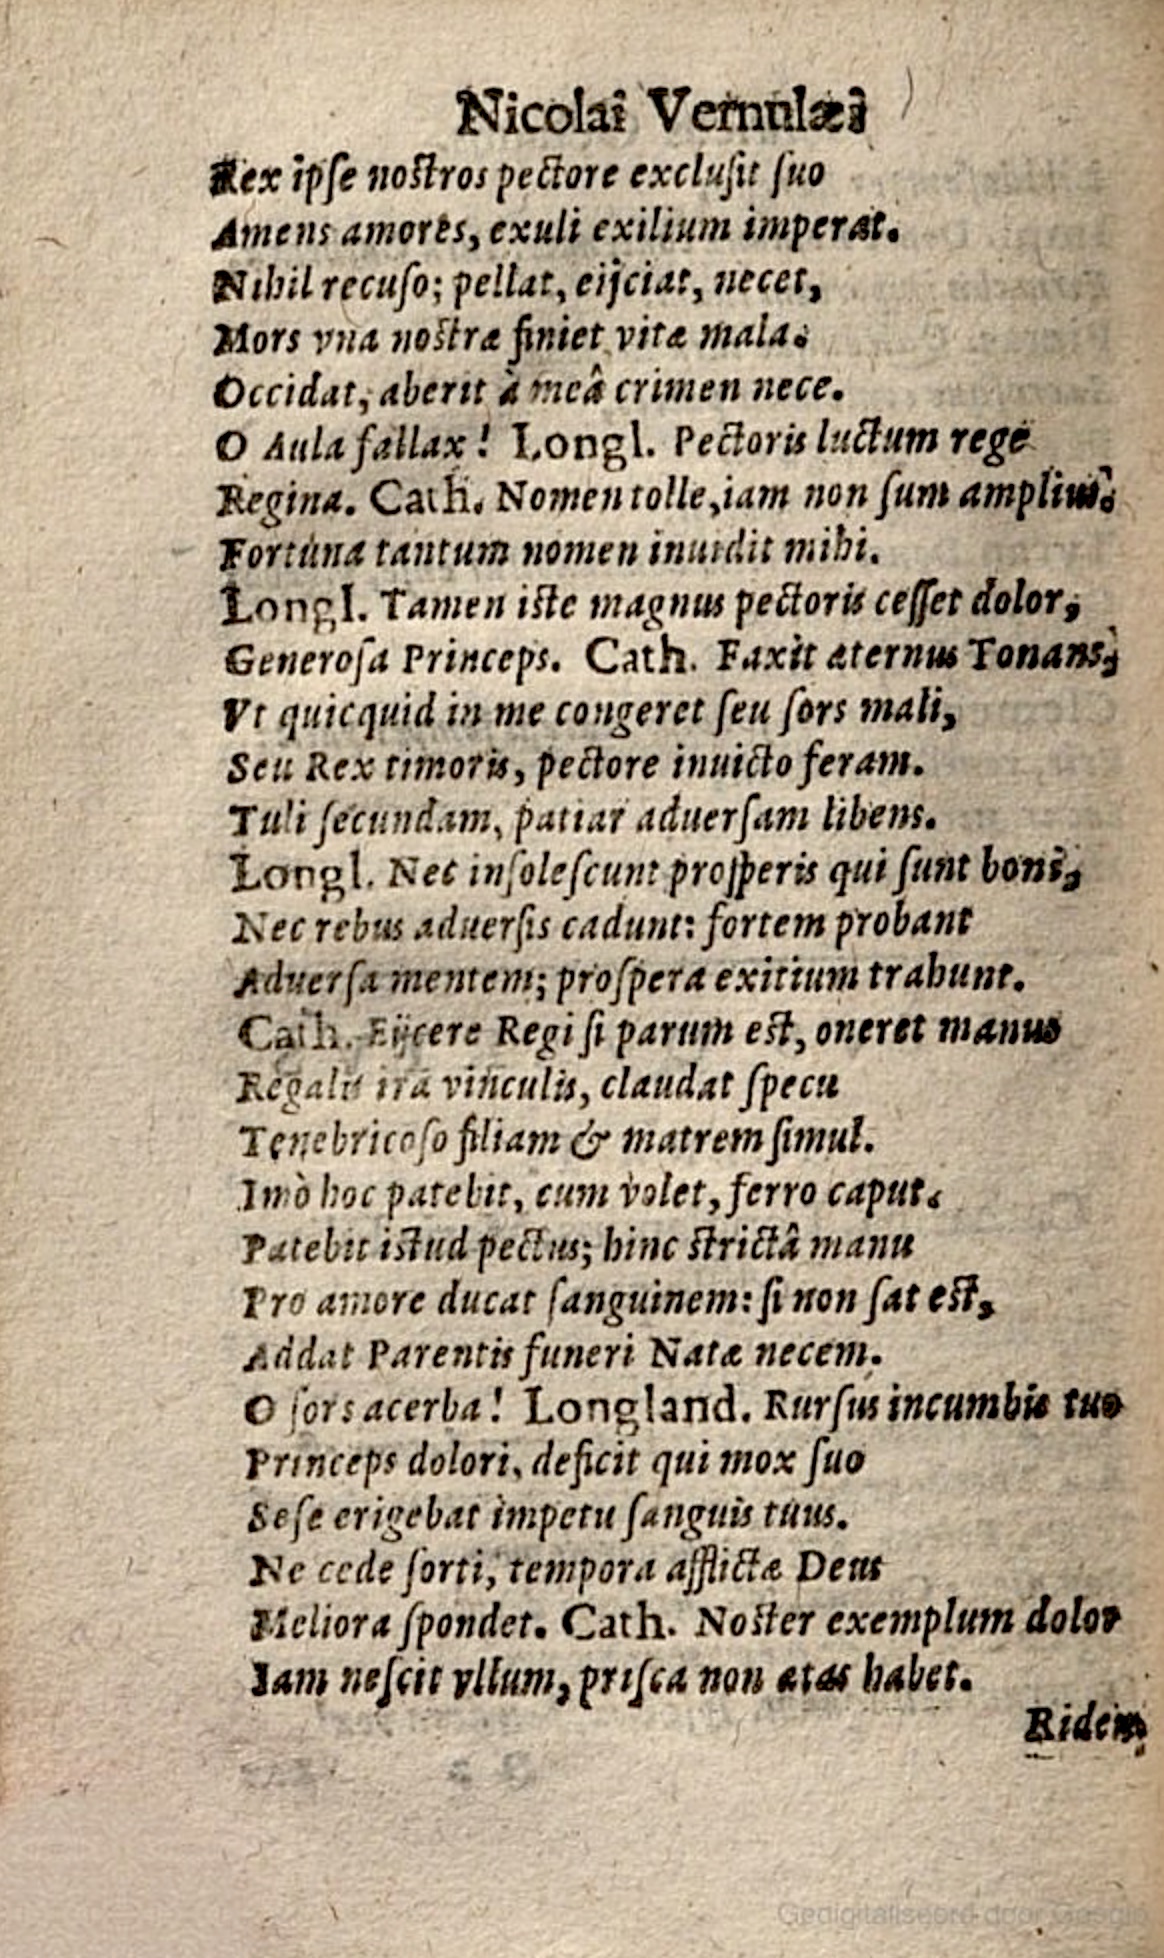 Nicolai Vernulæi
Rex ipſe noſtros pectore excluſit ſuo
Amens amores, exuli exilium imperat.
Nihil recuſo; pellat, eijciat, necet,
Mors vna noſtræ finiet vitæ mala.
Occidat, aberit à meâ crimen nece.
O Aula fallax! Longl. Pectoris luctum rege
Regina. Cath. Nomen tolle, iam non ſum amplius.
Fortuna tantum nomen inuidit mihi.
Longl. Tamen iſte magnus pectoris ceſſet dolor,
Generoſa Princeps. Cath. Faxit æternus Tonans,
Vt quicquid in me congeret ſeu ſors mali,
Seu Rex timoris, pectore inuicto feram.
Tuli ſecundam, patiar aduerſam libens.
Longl. Nec inſoleſcunt proſperis qui ſunt boni,
Nec rebus aduerſis cadunt: fortem probant
Aduerſa mentem; proſpera exitium trahunt.
Cath. Eijcere Regi ſi parum eſt, oneret manus
Regalis ira vinculis, claudat ſpecu
Tenebricoſo filiam & matrem ſimul.
Imò hoc patebit, cum volet, ferro caput.
Patebit iſtud pectus; hinc ſtrictâ manu
Pro amore ducat ſanguinem: ſi non ſat eſt,
Addat Parentis funeri Natæ necem.
O ſors acerba! Longland. Rurſus incumbis tuo
Princeps dolori, deficit qui mox ſuo
Seſe erigebat impetu ſanguis tuus.
Ne cede ſorti, tempora afflictæ Deus
Meliora ſpondet. Cath. Noſter exemplum dolor
Iam neſcit vllum, priſca non ætas habet.
Ridem
Gedigitaliseerd door Google